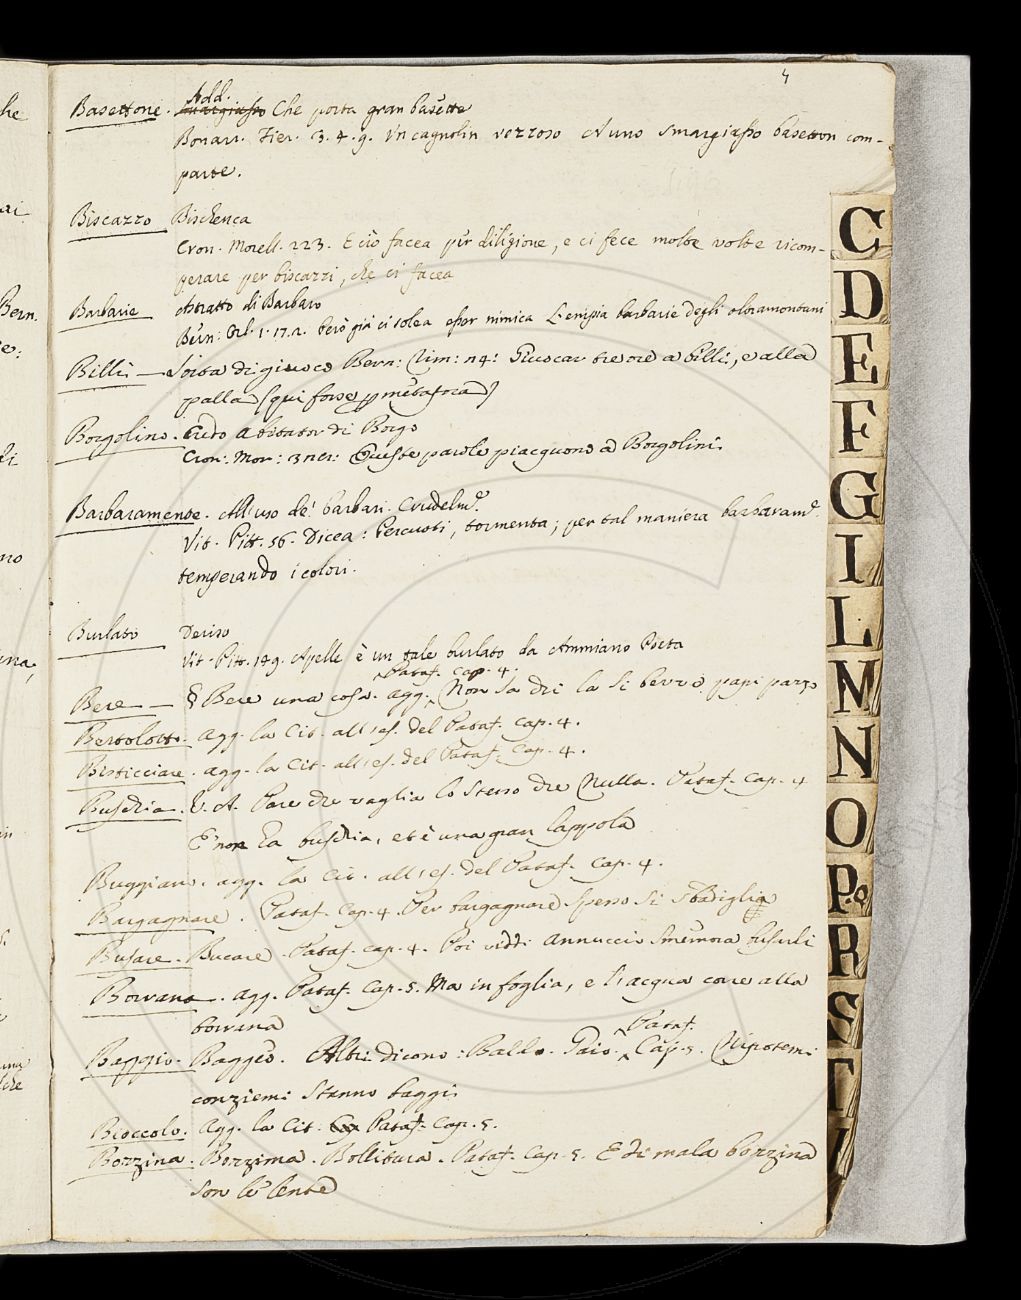 4
Basettone. Add. Smargiasso Che porta gran basette
Bonarr. Fier. 3. 4. 9. Un cagnolin vezzoso Ad uno smargiasso basetton com-
parte.
Biscazzo Bischenca
Cron. Morell. 223. E ciò facea per diligione, e ci fece molte volte ricom-
perare per biscazzi, che ci facea
Barbarie Astratto di Barbaro
Bern: Orl. 1. 17. 2. Però già ci solea esser nimica L'empia barbarie degli oltramontani
Billi — Sorta di giuoco Bern: Rim: 114: Giuocar tre ore a billi, e alla
palla (qui forse p metafora)
Borgolino. Credo abitator di Borgo
Cron: Mor: Queste parole piacquono a Borgolini.
Barbaramente. All'uso de' barbari. Crudelme.
Vit. Pitt. 56. Dicea: Percuoti, tormenta; per tal maniera barbarame
temperando i colori.
Burlato Deriso
Vit. Pitt. 149. Apelle è un tale burlato da Ammiano Poeta
Pataf. cap. 4.
Bere — § Bere una cosa. agg. Non sa chi la si bevve papi
Bertolotto. agg. la Cit. all'es. del Pataf. cap. 4.
Bisticciare. agg. la Cit. all'es. del Pataf. cap. 4.
Buschia. V. A. Pare che vaglia lo stesso che Nulla. Pataf. Cap. 4
E' non ha buschia, et è una gran lappola
Buggiano. agg. la Cit. all'es. del Pataf. Cap. 4.
Bargagnare. Pataf. Cap. 4. Per bargagnare spesso si sbadiglia
Busare. Bucare. Pataf. cap. 4. Poi viddi Annuccio
Borrana. agg. Pataf. Cap. 5. Ma in foglia, e l'acqua corre alla
borrana
Baggio. Baggeo. Altri dicono: Baldo. Gaio. Pataf. Cap. 5.
stanno baggi
Broccolo. Agg. la Cit. Pataf. Cap. 5.
Bozzina. Bozzima. Bollitura. Pataf. Cap. 5. E di mala bozzina
son le lente
C
D
E
F
G
I
L
M
N
O
P.Q
R
S
T